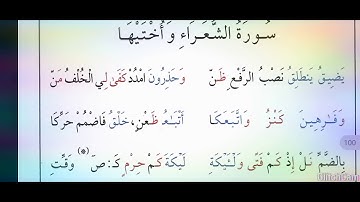 سُورَةُ الشُّعَرَاءِ وَأُخْتَيْهَا
يَضِيقُ يَنطَلِقُ نَصْبُ الرَّفْعِ ظَنّْ وَحَذِرُونَ امْدُدْ كَفَى لِي الْخُلْفُ مَنّْ
وَفَرِهِينَ كَنْزُ وَاتَّبَعَكَا أَتْبَعُ ظَعْنٍ، خَلْقُ فَاضْمُمْ حَرِّكَا
بِالضَّمِّ نَلْ إِذْ كَمْ فَتًى وَلْئَيْكَةِ لَيْكَةَ كَمْ حِرْمٍ كَـ: صَ وَقَّتِ
100